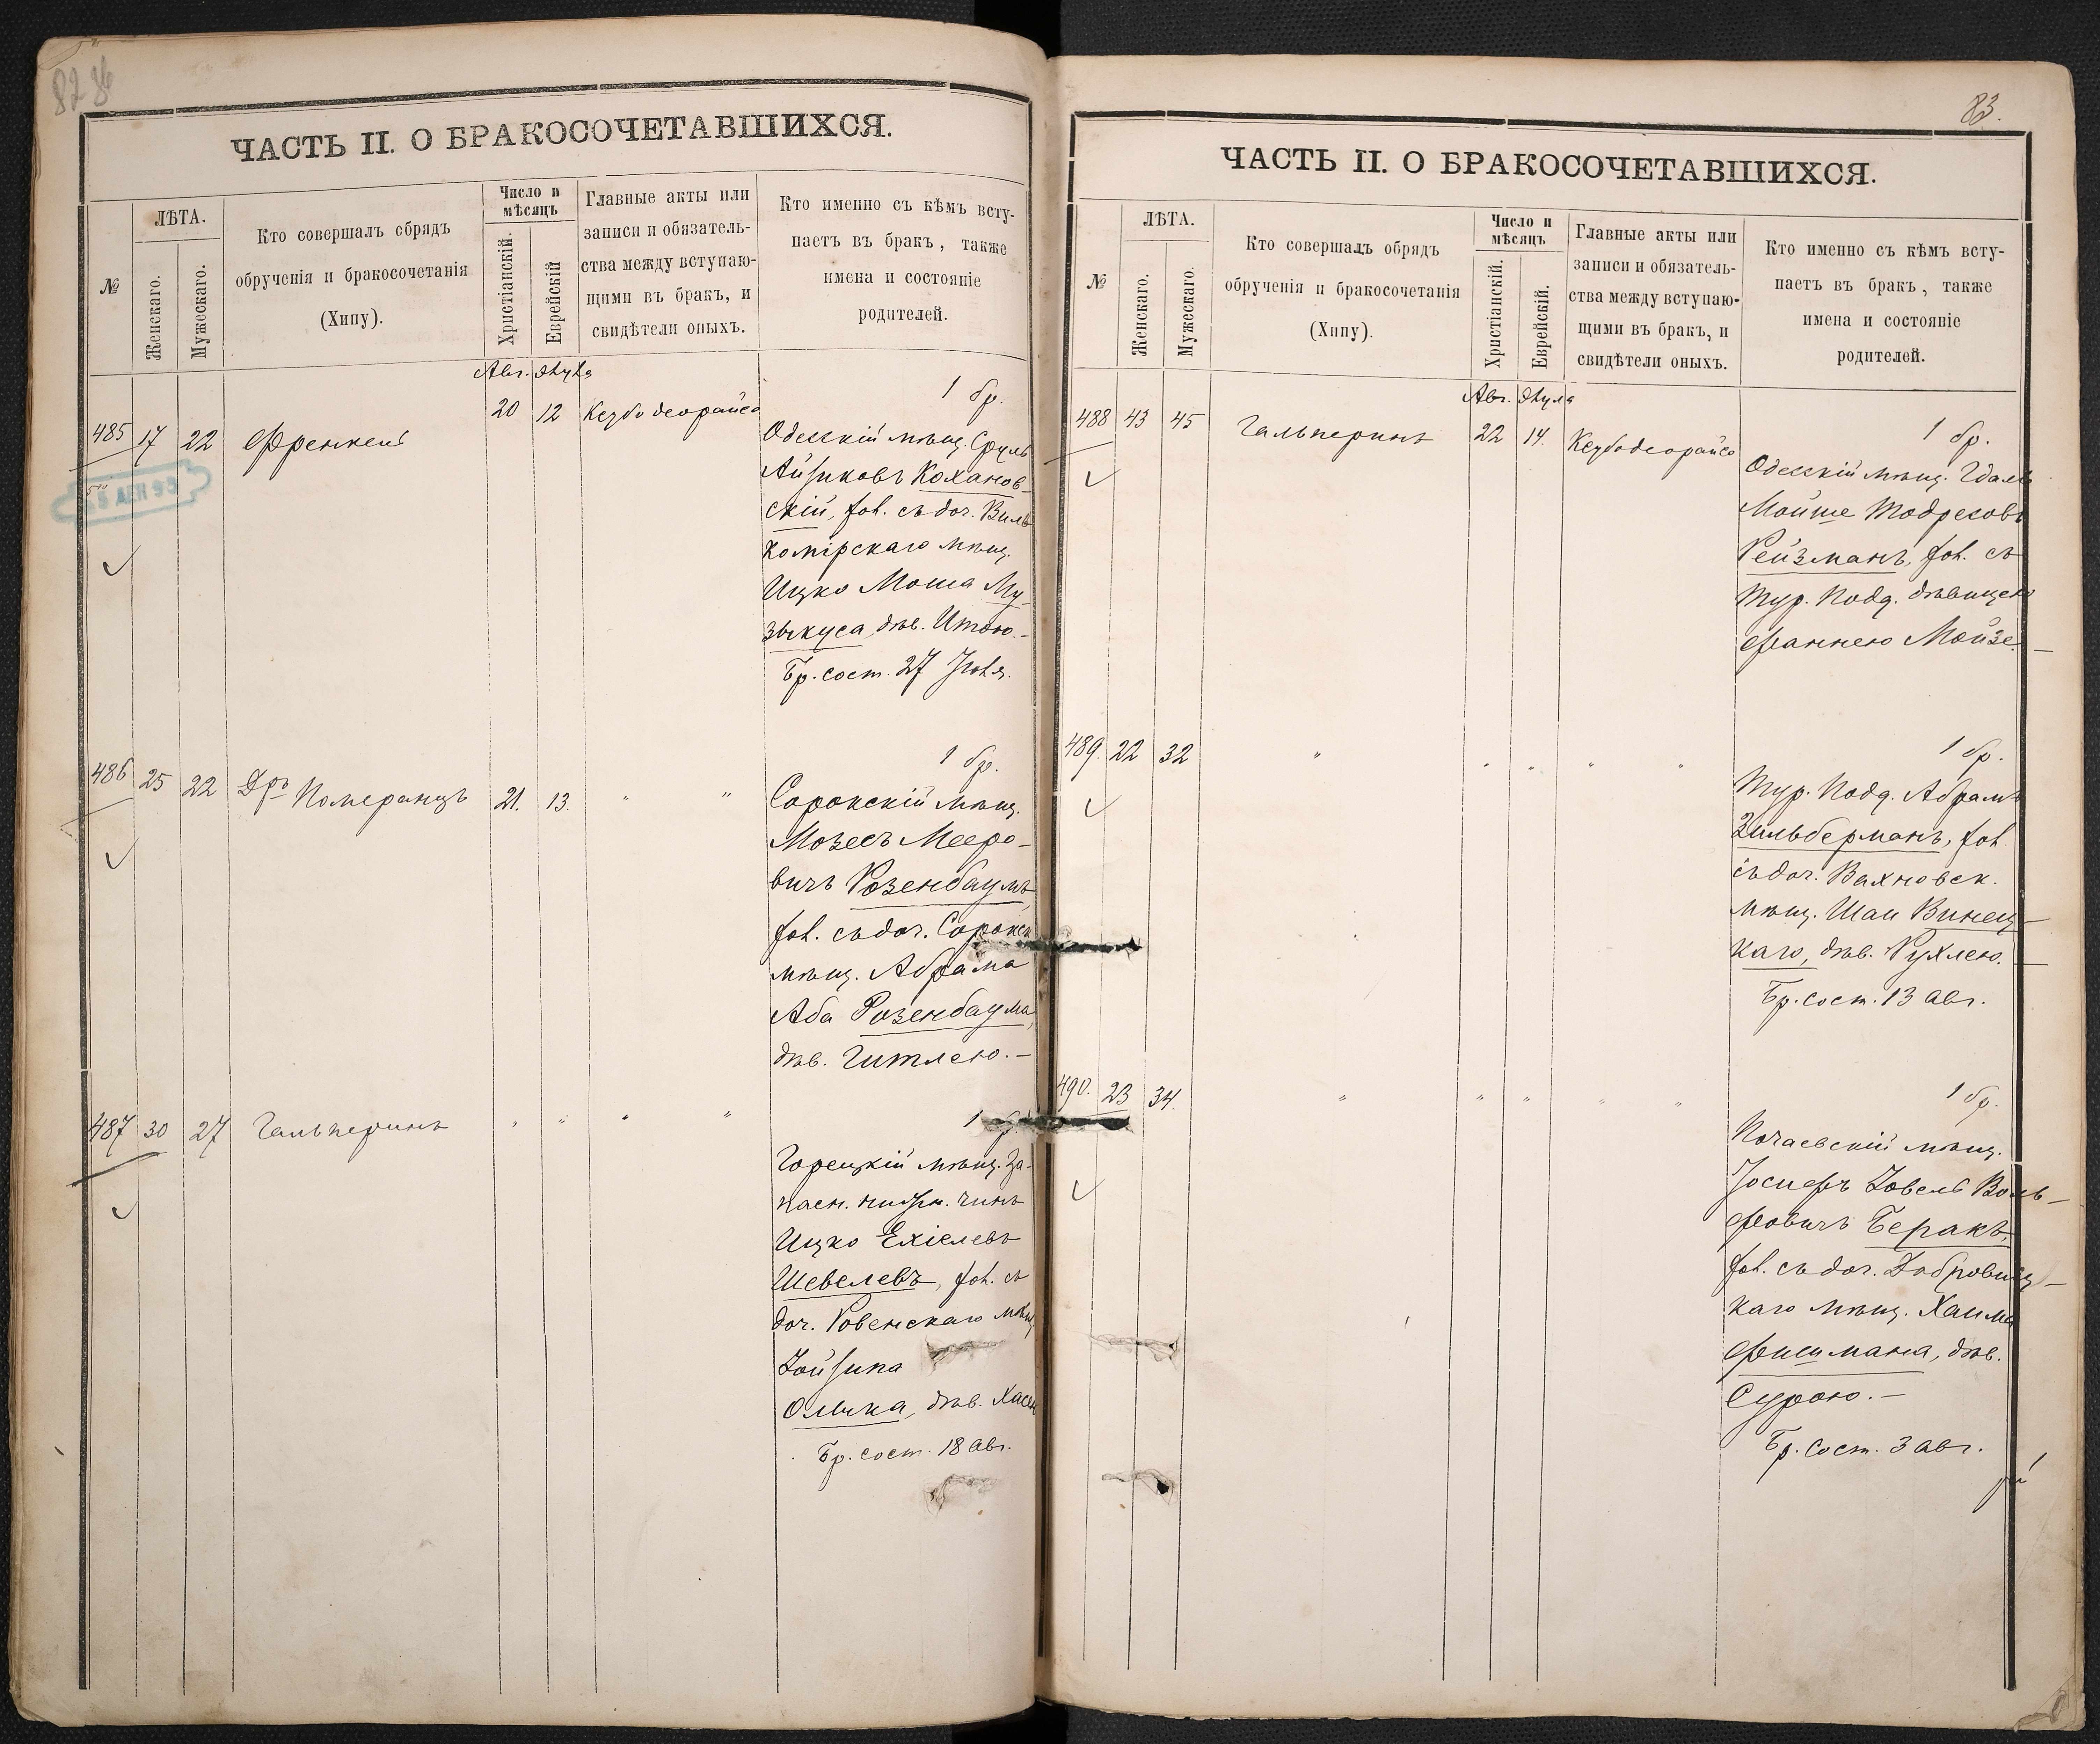 82
ЧАСТЬ II. О БРАКОСОЧЕТАВШИХСЯ.
№
ЛѢТА.
Женскаго.
Мужескаго.
Кто совершалъ обрядъ
обрученія и бракосочетанія
(Хипу).
Число и
мѣсяцъ
Христіанскій.
Еврейскій
Главные акты или
записи и обязатель-
ства между вступаю-
щими въ бракъ, и
свидѣтели оныхъ.
Кто именно съ кѣмъ всту-
паетъ въ бракъ, также
имена и состояніе
родителей.
Авг. Элула
485 17 22 Френкель 20 12 Кезубо деорайсо
1 бр.
Одесскій мѣщ. Сруль
Айзиковъ Коханов-
скій, хол. съ доч. Виль
комірскаго мѣщ.
Ицко Моша Му-
зыкуса, дѣв. Итою.-
Бр. сост. 27 Іюля.
486 25 22 Дръ Померанцъ 21. 13. " "
1 бр.
Сорокскій мѣщ.
Мозесъ Мееро-
вичъ Розенбаумъ
хол. съ доч. Сорокск
мѣщ. Абрама
Аба Розенбаума,
дѣв. Гитлею.-
487 30 27 Гальперинъ " " " "
1 бр.
Горецкій мѣщ. За-
пасн. нижн. чинъ
Ицко Ехіелевъ
Шевелевъ, хол. съ
доч. Ровенскаго мѣщ
Зойзипа
Олика, дѣв. Хасею
Бр. сост. 18 авг.
83.
ЧАСТЬ II. О БРАКОСОЧЕТАВШИХСЯ.
№
ЛѢТА.
Женскаго.
Мужескаго.
Кто совершалъ обрядъ
обрученія и бракосочетанія
(Хипу).
Число и
мѣсяцъ
Христіанскій.
Еврейскій.
Главные акты или
записи и обязатель-
ства между вступаю-
щими въ бракъ, и
свидѣтели оныхъ.
Кто именно съ кѣмъ всту-
паетъ въ бракъ, также
имена и состояніе
родителей.
Авг. Элула
488 43 45 Гальперинъ 22 14. Кезубодеорайсо
1 бр.
Одесскій мѣщ. Гдаль
Мойше Тодресовъ
Рейзманъ, хол. съ
Тур. подд. дѣвицею
Фаннею Мойзе.-
489. 22 32 " " " " "
1 бр.
Тур. подд. Абрамъ
Зильберманъ, хол.
съ доч. Вахновск.
мѣщ. Шаи Винец-
каго, дѣв. Рухлею.
Бр. сост. 13 авг.
490. 23 34. " " " " "
1 бр.
Почаевскій мѣщ.
Іосифъ Зовель Воль-
фовичъ Беракъ,
хол. съ доч. Добровиц-
каго мѣщ. Хаима
Фишмана, дѣв.
Сурою.-
Бр. сост. 3 авг.